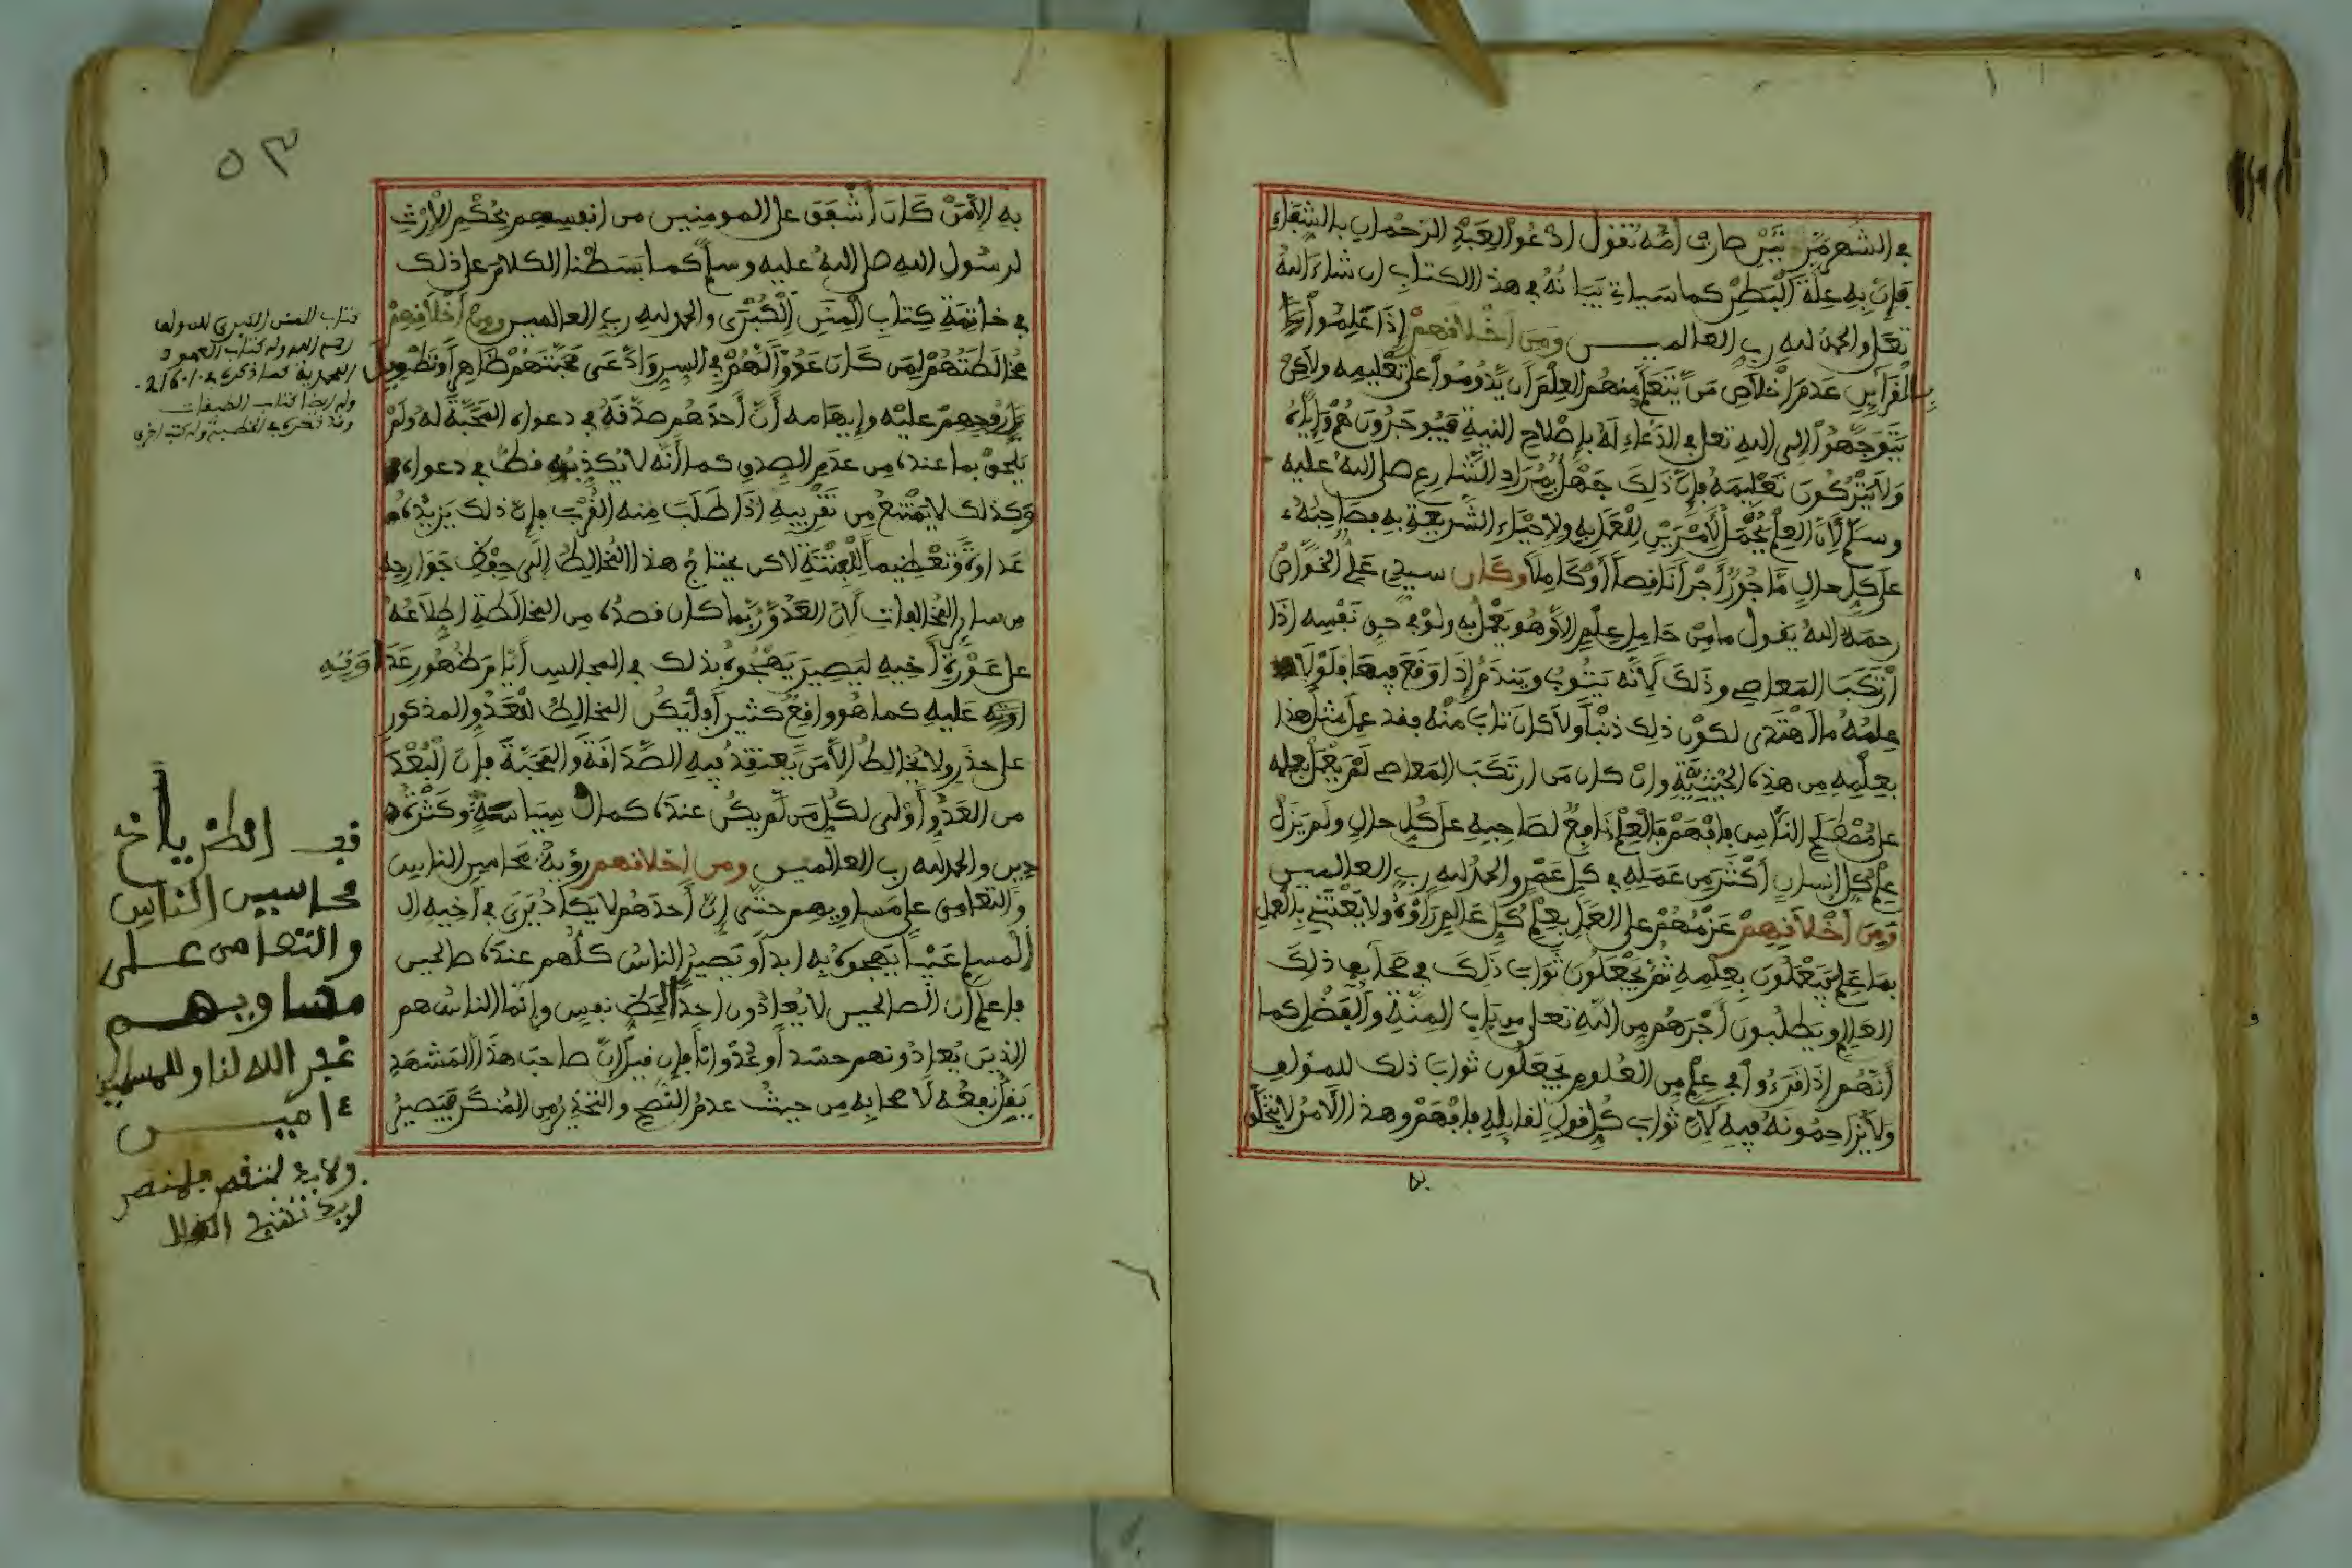 في الشهر مرتين صارت أمه تقول ادعوا لعبد الرحمان بالشفاء
فإن به علة البطن كما سيأتي بيانه في هذا الكتاب إن شاء الله
تعلى والحمد لله رب العالميـــن ومن أخلاقهم إذا علموا
بالقرائن عدم إخلاص من يتعلم منهم العلم أن يدوموا على تعليمه ولاكن
يتوجهوا إلى الله تعلى في الدعاء له بإصلاح النية فيوجرون هم وإياه
ولا يتركون تعليمه فإن ذلك جهل بمراد الشارع صلى الله عليه
وسلم لأن العلم يحمل لأمرين للعمل به ولإحياء الشريعة به فصاحبه
على كل حال مأجور أجرا ناقصا أو كاملا وكان سيدي علي الخواص
رحمه الله يقول ما من حامل علم إلا وهو يعمل به ولو في حق نفسه إذا
ارتكب المعاصي وذلك لأنه يتوب ويندم إذا وقع فيها فلولا
علمه ما اهتدى لكون ذلك ذنبا ولا كان تاب منه فقد عمل مثل هذا
بعلمه من هذه الحيثية وإن كان من ارتكب المعاصي لم يعمل بعلمه
على مصطلح الناس فافهم فالعلم نافع لصاحبه على كل حال ولم يزل
علم كل إنسان أكثر من عمله في كل عصر والحمد لله رب العالمين
ومن أخلاقهم عزمهم على العمل بعلم كل عالم رأوه ولا يعتني بالعمل
بما علم فيعملون بعلمه ثم يجعلون ثواب ذلك في صحايف ذلك
العالم ويطلبون أجرهم من الله تعلى من باب المنة والفضل كما
أنهم إذا قرءوا في علم من العلوم يجعلون ثواب ذلك للمؤلف
ولا يزاحمونه فيه لأن ثواب كل قول لقايله فافهم وهذا الأمر لا يتخلق
به
٥٣
به إلا من كان أشفق على المومنين من أنفسهم بحكم الإرث
لرسول الله صلى الله عليه وسلم كما بسطنا الكلام على ذلك
في خاتمة كتاب المنن الكبرى والحمد لله رب العالمين ومن أخلاقهم
مخالطتهم لمن كان عدوا لهم في السر وادعى محبتهم ظاهرا وتطويل
روحهم عليه وإيهامه أن أحدهم صدقه في دعواه المحبة له ولم
يلحق بما عنده من عدم الصدق كما أنه لا يكذبه قط في دعواه
وكذلك لا يمتنع من تقريبه إذا طلب منه القرب فإن ذلك يزيده
عداوة وتعظيما للفتنة لاكن يحتاج هذا المخالط إلى حفظ جوارحه
من ساير المخالفات لأن العدو ربما كان قصده من المخالطة اطلاعه
على عورة أخيه ليصير يهجوه بذلك في المجالس أيام ظهور عداوته
عليه كما هو واقع كثير أفليكن المخالط للعدو المذكور
على حذر ولا يخالط إلا من يعتقد فيه الصداقة والمحبة فإن البعد
من العدو أولى لكل من لم يكن عنده كمال سياسة وكثرة
دين والحمد لله رب العالمين ومن أخلاقهم رؤية محاسن الناس
والتعامي على مساويهم حتى إن أحدهم لا يكاد يرى في أخيه ال
المسلم عيبا يهجوه به أبدا وتصير الناس كلهم عنده صالحين
فاعلم أن الصالحين لا يعادون أحدا لحظ نفس وإنما الناس هم
الذين يعادونهم حسدا وعدوانا فإن قيل إن صاحب هذا المشهد
يقل نفعه لأصحابه من حيث عدم النصح والتحذير من المنكر فتصير
كتاب المنن الكبرى للمؤلف
رحمه الله وله كتاب العهود
المحمدية كما ذكره
وله أيضا كتاب الطبقات
قف انظر يا أخ
محاسين الناس
والتعامى على
مساويهم
غفر الله لنا وللمسلمين
ءاميـــن